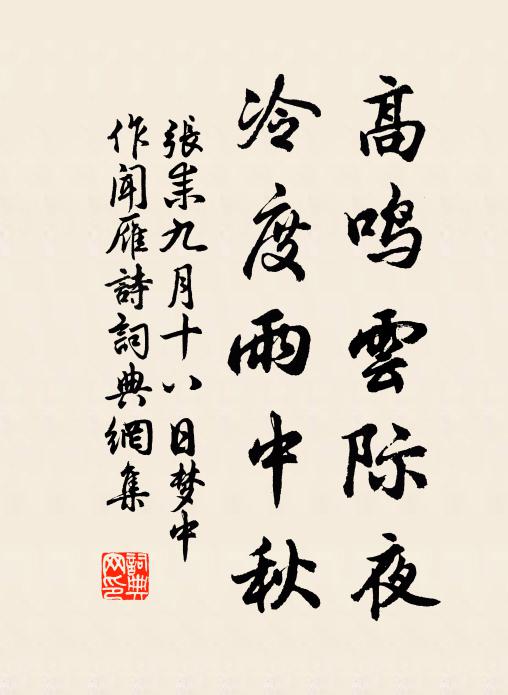 高鳴雲际夜
冷度雨中秋
張耒九月十八日梦中
作闻雁詩詞典網集
詞典网印